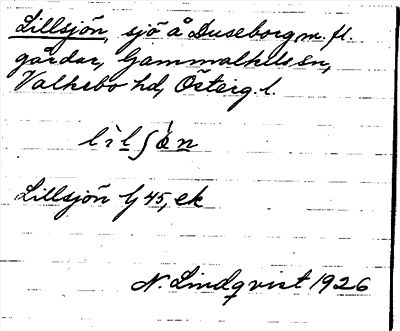 Lillsjön, sjö å Duseborg m. fl.
gårdar, Gammalkils sn,
Valkebo hd, Österg. l.
Lillsjön G 45, ek
N. Lindqvist 1926